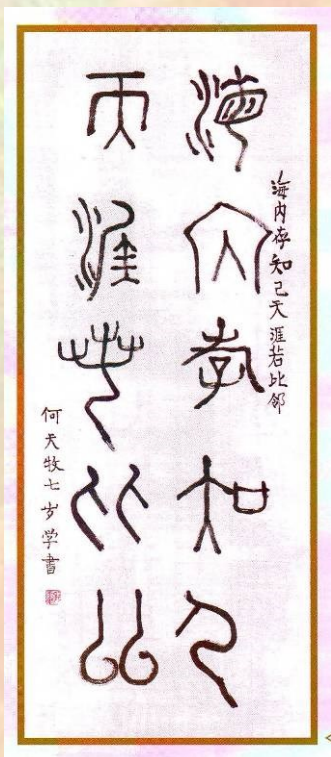 海内存知己天涯若比邻
海内存知己
天涯若比邻
何天牧七岁学書